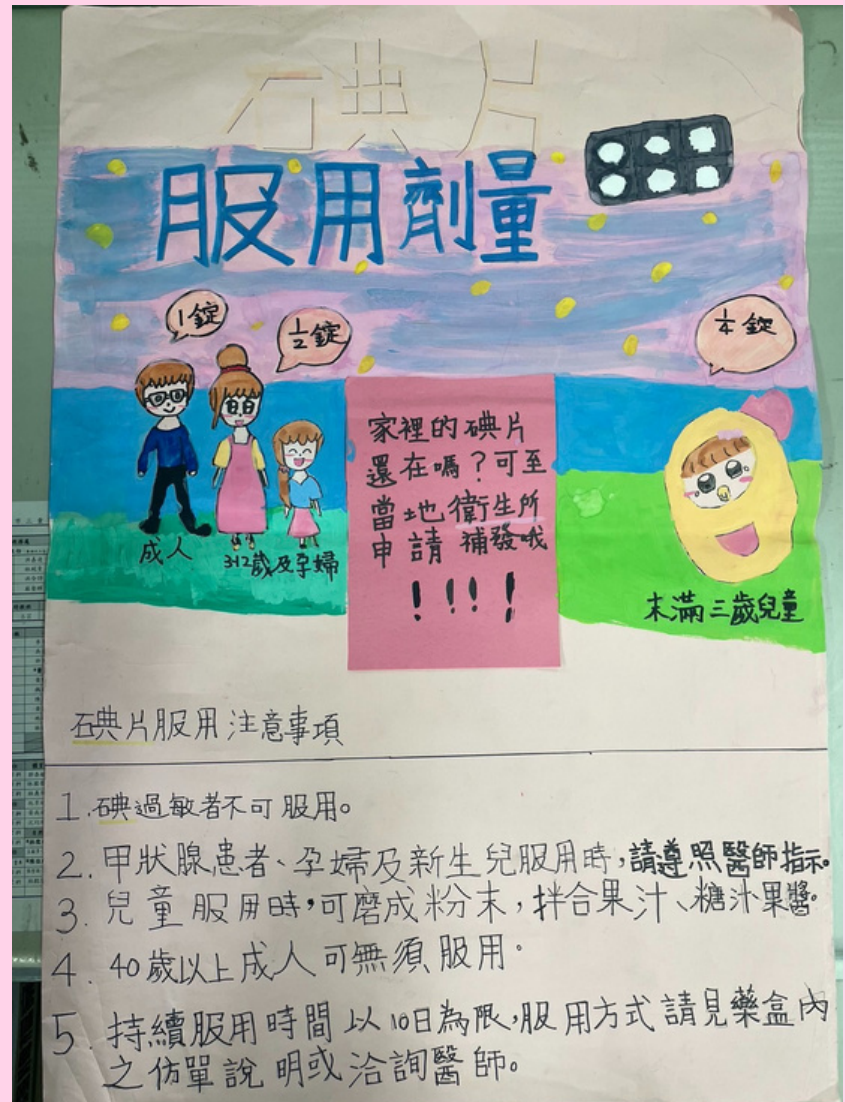 碘片
服用劑量
1錠
½錠
¼錠
家裡的碘片
還在嗎？可至
當地衛生所
申請補發哦
！！！！
成人
3-12歲及孕婦
未滿三歲兒童
碘片服用注意事項
1.碘過敏者不可服用。
2.甲狀腺患者、孕婦及新生兒服用時，請遵照醫師指示。
3.兒童服用時，可磨成粉末，拌合果汁、糖汁果醬。
4.40歲以上成人可無須服用。
5.持續服用時間以10日為限，服用方式請見藥盒內
之仿單說明或洽詢醫師。